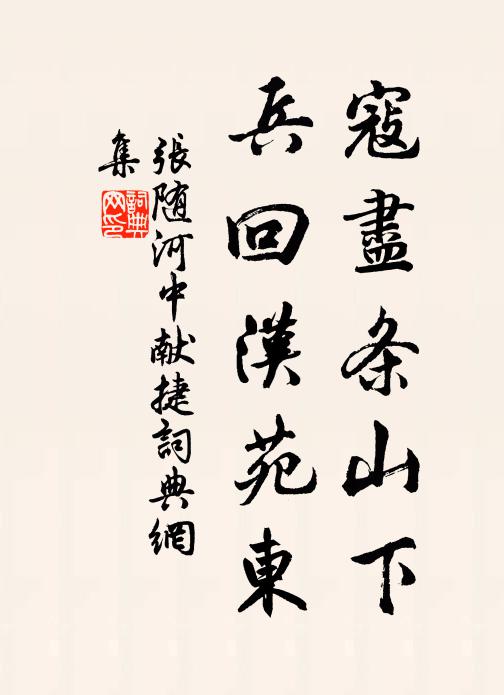 寇盡条山下
兵回漢苑東
張随河中献捷詞典網
集
詞典
网印